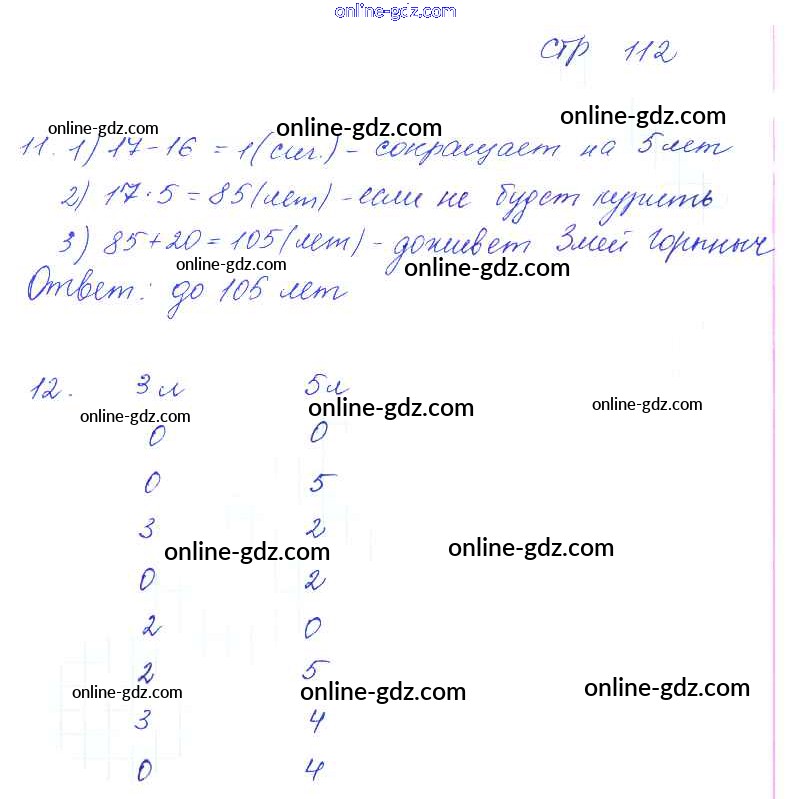 online-gdz.com
стр 112
online-gdz.com online-gdz.com online-gdz.com
11. 1) 17-16 = 1(сиг.) - сокращает на 5 лет
2) 17·5 = 85(лет) - если не будет курить
3) 85+20 = 105(лет) - доживет Змей Горыныч
online-gdz.com online-gdz.com
Ответ: до 105 лет
12. 3 л 5 л
online-gdz.com online-gdz.com online-gdz.com
0 0
0 5
3 2
online-gdz.com online-gdz.com
0 2
2 0
2 5
online-gdz.com online-gdz.com online-gdz.com
3 4
0 4